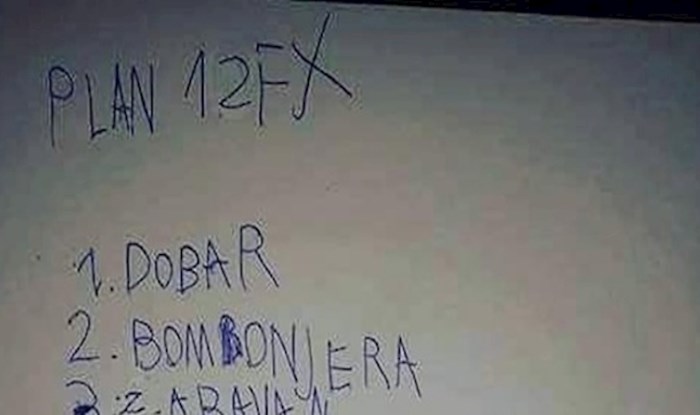 PLAN 12FX
1. DOBAR
2. BOMBONJERA
3. ZABAVAN